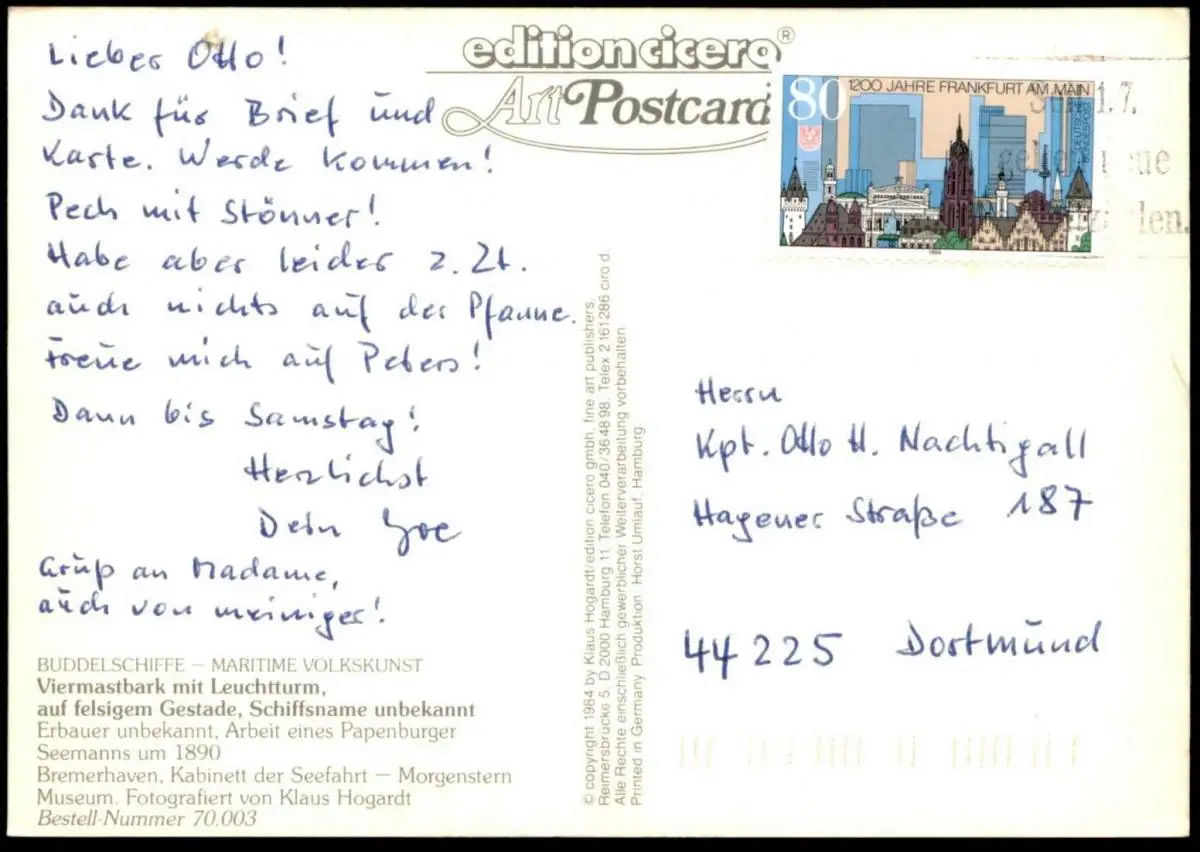 Lieber Otto!
Dank für Brief und
Karte. Werde kommen!
Pech mit Stönner!
Habe aber leider z. Zt.
auch nichts auf der Pfanne.
Freue mich auf Peters!
Dann bis Samstag!
Herzlichst
Dein Joe
Gruß an Madame,
auch von meiniger!
BUDDELSCHIFFE – MARITIME VOLKSKUNST
Viermastbark mit Leuchtturm,
auf felsigem Gestade, Schiffsname unbekannt
Erbauer unbekannt, Arbeit eines Papenburger
Seemanns um 1890
Bremerhaven, Kabinett der Seefahrt – Morgenstern
Museum. Fotografiert von Klaus Hogardt
Bestell-Nummer 70.003
edition cicero®
Art Postcard
© copyright 1984 by Klaus Hogardt/edition cicero gmbh, fine art publishers,
Reimersbrücke 5, D 2000 Hamburg 11, Telefon 040/364898, Telex 2161286 ciro d.
Alle Rechte einschließlich gewerblicher Weiterverarbeitung vorbehalten.
Printed in Germany Produktion Horst Umlauf, Hamburg
80
1200 JAHRE FRANKFURT AM MAIN
DEUTSCHE
BUNDESPOST
1.7.
Herrn
Kpt. Otto H. Nachtigall
Hagener Straße 187
44225 Dortmund